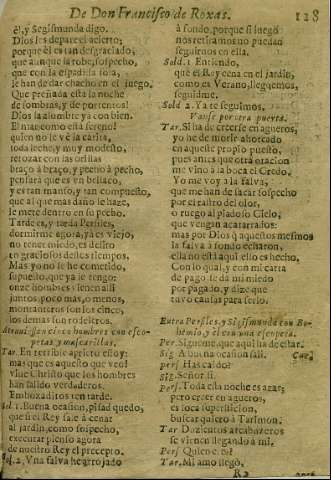 De Don Francisco de Roxas. 128
èl, y Segismunda digo.
Dios les depare el acierto;
porque èl es tan desgraciado,
que aunque la robe, sospecho,
que con la espadilla sola,
le han de dar chacho en el juego.
Que preñada està la noche
de sombras, y de portentos!
Dios la alombre ya con bien.
El mar como està sereno!
quien no le vè la carita,
toda leche, y muy modesto,
retozar con las orillas
braço à braço, y pecho à pecho,
pensarà que es vn bellaco,
y es tan manso, y tan compuesto,
que al que mas daño le haze,
le mete dentro en su pecho.
Tarde es, y tarda Persiles,
dormirme agora, ya es viejo,
no tener miedo, es delito
en graciosos destos tiempos.
Mas yo no se he cometido,
supuesto, que ya le tengo:
onze hombres vienen alli
juntos, poco mas, o menos,
montanteros son los cinco,
los demas son rodeleros.
cinco hombres con escopetas
y mascarillas.
Tar. En terrible aprieto estoy:
mas que es aquesto que veo?
viue Christo que los hombres
han salido verdaderos.
Embozaditos ven tarde.
Sol. 1. Buena ocasion, pisad quedo,
que si el Rey sale à cenar
al jardin, como sospecho,
executar pienso agora
de nuestro Rey el precepto.
Sol. 2. Vna salva he arrojado
à fondo, porque si luego
nos retiramos no puedan
seguirnos en ella.
Sold. 1 Entiendo,
que el Rey cena en el jardin,
como es Verano, lleguemos,
seguidme.
Sold 2. Ya te seguimos.
Vanse por otra puerta.
Tar. Si ha de creerse en agueros,
yo he de morir ahorcado
en aqueste propio puesto,
pues antes que otra oracion
me vino à la boca el Credo.
Yo me voy à la salva,
que me han de sacar sospecho
por el rastro del olor,
o ruego al piadoso Cielo,
que vengan acatarrados:
mas por Dios q aquestos mesmos
la salva à fondo echaron,
ella no està aqui, ello es hecho,
Con lo qual, y con mi carta
de pago se dà mi miedo
por pagado, y dize que
tuvo causas para serlo.
Entra Persiles, y Sigismunda con Bohemio,
y èl con una escopeta.
Per. Sigueme, que aqui ha de estar.
Sig. A buena ocasion sali. Cae.
Pers Has caido?
Sig. Señor si.
Pers. Toda esta noche es azar;
pero creer en agueros,
es loca supersticion,
buscar quiero à Tarimon.
Tar Dozientos arcabuzeros
se vienen llegando à mi.
Pers Quien es?
Tar. Mi amo llegò.
R 2